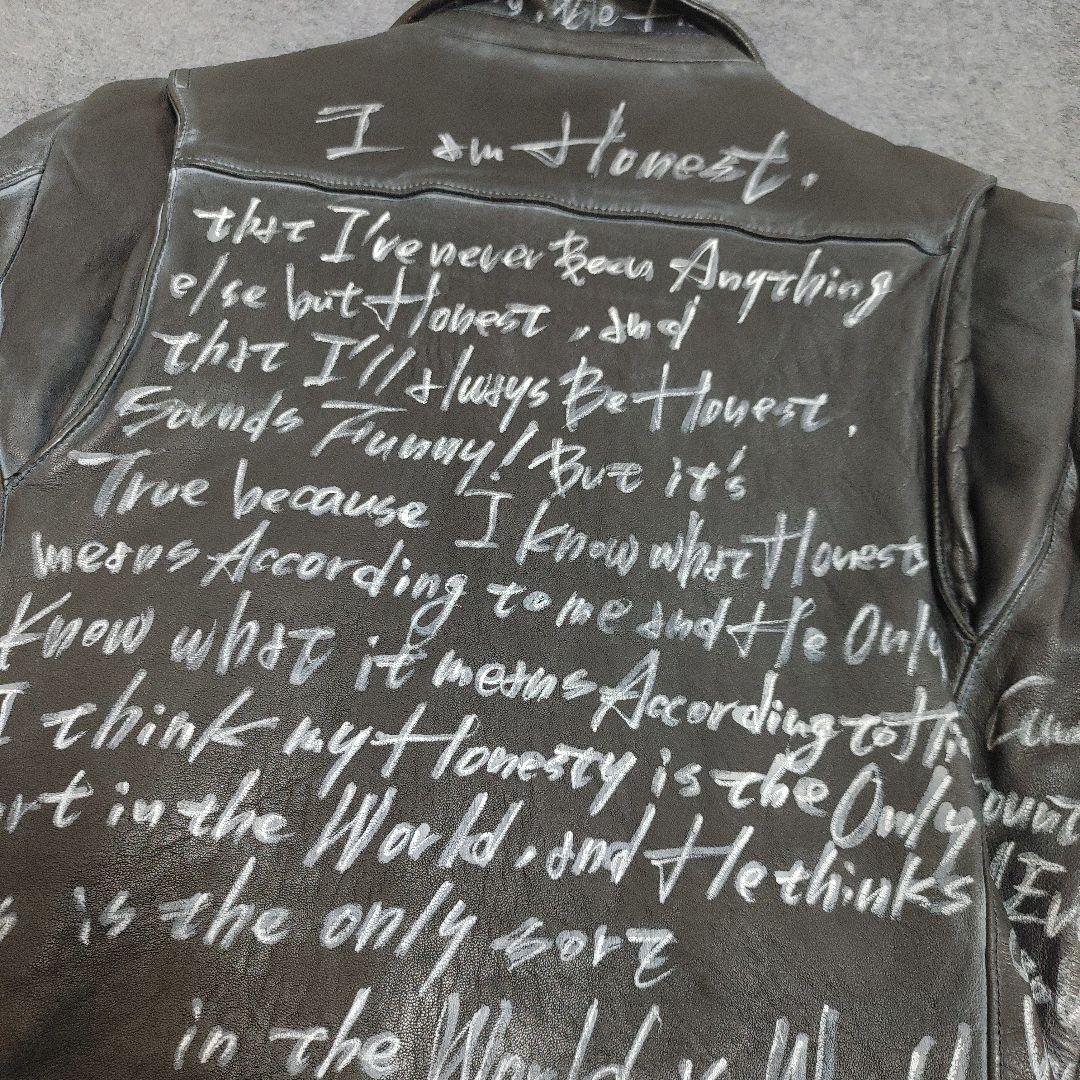 I am Honest.
that I've never Been Anything
else but Honest, and
that I'll always Be Honest.
Sounds Funny! But it's
True because I know what Honests
means According to me and He Only
Know what it means According to Hi
I think my Honesty is the Only
rt in the World, and He thinks
s is the only sort
in the World